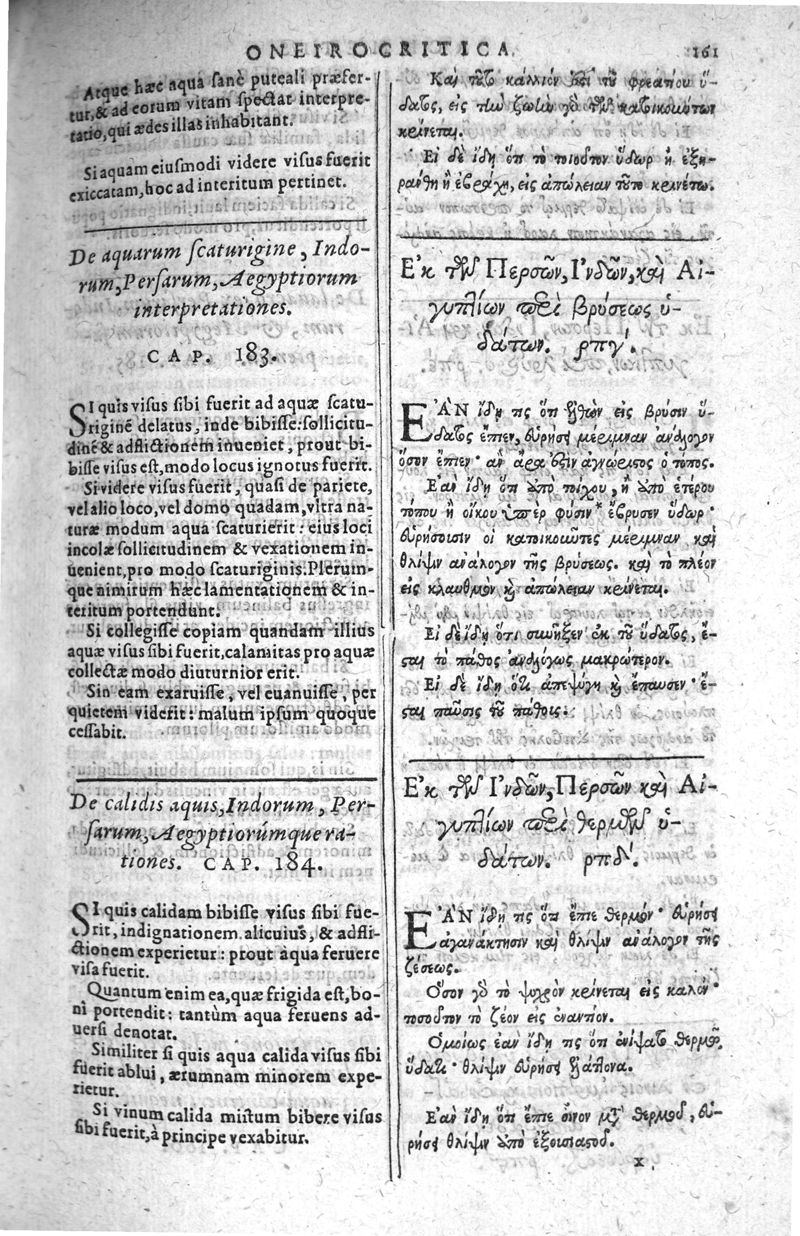 ONEIROCRITICA.
161
Atque hæc aqua sanè puteali præfer-
tur, & ad eorum vitam spectat interpre-
tatio, qui ædes illas inhabitant.
Si aquam eiusmodi videre visus fuerit
exiccatam, hoc ad interitum pertinet.
De aquarum scaturigine, Indo-
rum, Persarum, Aegyptiorum
interpretationes.
CAP. 183.
SI quis visus sibi fuerit ad aquæ scatu-
riginē delatus, inde bibisse: sollicitu-
dinē & adflictionem inueniet, prout bi-
bisse visus est, modo locus ignotus fuerit.
Si videre visus fuerit, quasi de pariete,
vel alio loco, vel domo quadam, vltra na-
turæ modum aqua scaturierit: eius loci
incolæ sollicitudinem & vexationem in-
uenient, pro modo scaturiginis. Plerum-
que nimirum hæc lamentationem & in-
teritum portendunt.
Si collegisse copiam quandam illius
aquæ visus sibi fuerit, calamitas pro aquæ
collectæ modo diuturnior erit.
Sin eam exaruisse, vel euanuisse, per
quietem viderit: malum ipsum quoque
cessabit.
De calidis aquis, Indorum, Per-
sarum, Aegyptiorúmque ra-
tiones. CAP. 184.
SI quis calidam bibisse visus sibi fue-
rit, indignationem alicuius, & adfli-
ctionem experietur: prout aqua feruere
visa fuerit.
Quantum enim ea, quæ frigida est, bo-
ni portendit: tantùm aqua feruens ad-
uersi denotat.
Similiter si quis aqua calida visus sibi
fuerit ablui, ærumnam minorem expe-
rietur.
Si vinum calida mistum bibere visus
sibi fuerit, à principe vexabitur.
Καὶ τοῦτο κάλλιόν ἐστι τοῦ φρεατίου ὕ-
δατος, εἰς τὴν ζωὴν γὸ τῶν κατοικούντων
κρίνεται.
Εἰ δὲ ἴδῃ ὅτι τὸ τοιοῦτον ὕδωρ ἢ ἐξη-
ράνθη ἢ, εἰς ἀπώλειαν τοῦτο κρινέτω.
Ἐκ τῶν Περσῶν, Ἰνδῶν, καὶ Αἰ-
γυπτίων περὶ βρύσεως ὑ-
δάτων. ρπγ΄.
ΕΑΝ ἴδῃ τις ὅτι ἐλθὼν εἰς βρύσιν ὕ-
δατος ἔπιεν, εὑρήσει μέριμναν ἀνάλογον
ὅσον ἔπιεν· ἂν ἄρα ἐστὶν ἀγνώριμος ὁ τόπος.
Ἐὰν ἴδῃ ὅτι ἀπὸ τοίχου, ἢ ἀπὸ ἑτέρου
τόπου ἢ οἴκου ὑπὲρ φύσιν* ἔβρυσεν ὕδωρ·
εὑρήσουσιν οἱ κατοικοῦντες μέριμναν καὶ
θλίψιν ἀνάλογον τῆς βρύσεως. καὶ τὸ πλέον
εἰς κλαυθμὸν καὶ ἀπώλειαν κρίνεται.
Εἰ δὲ ἴδῃ ὅτι συνῆξεν ἐκ τοῦ ὕδατος, ἔ-
σται τὸ πάθος ἀναλόγως μακρώτερον.
Εἰ δὲ ἴδῃ ὅτι ἀπεψύγη καὶ ἔπαυσεν· ἔ-
σται παῦσις τοῦ πάθους.
Ἐκ τῶν Ἰνδῶν, Περσῶν καὶ Αἰ-
γυπτίων περὶ θερμῶν ὑ-
δάτων. ρπδ΄.
ΕΑΝ ἴδῃ τις ὅτι ἔπιε θερμόν· εὑρήσει
ἀγανάκτησιν καὶ θλίψιν ἀνάλογον τῆς
ζέσεως.
Ὅσον γὸ τὸ ψυχρὸν κρίνεται εἰς καλόν·
τοσοῦτον τὸ ζέον εἰς ἐναντίον.
Ὁμοίως ἐὰν ἴδῃ τις ὅτι ἐνίψατο θερμῷ
ὕδατι· θλίψιν εὑρήσει ἐλάττονα.
Ἐὰν ἴδῃ ὅτι ἔπιε οἶνον μετὰ θερμοῦ, εὑ-
ρήσει θλίψιν ἀπὸ ἐξουσιαστοῦ.
x